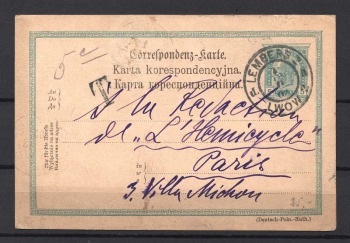 5 c
Correspondenz-Karte.
Karta korespondencyjna.
Карта кореспонденційна.
LEMBERG
LWÓW
T
À la Rédaction
de "L'Hemicycle"
Paris
3. Villa Michon
25.-
(Deutsch-Poln.-Ruth.)